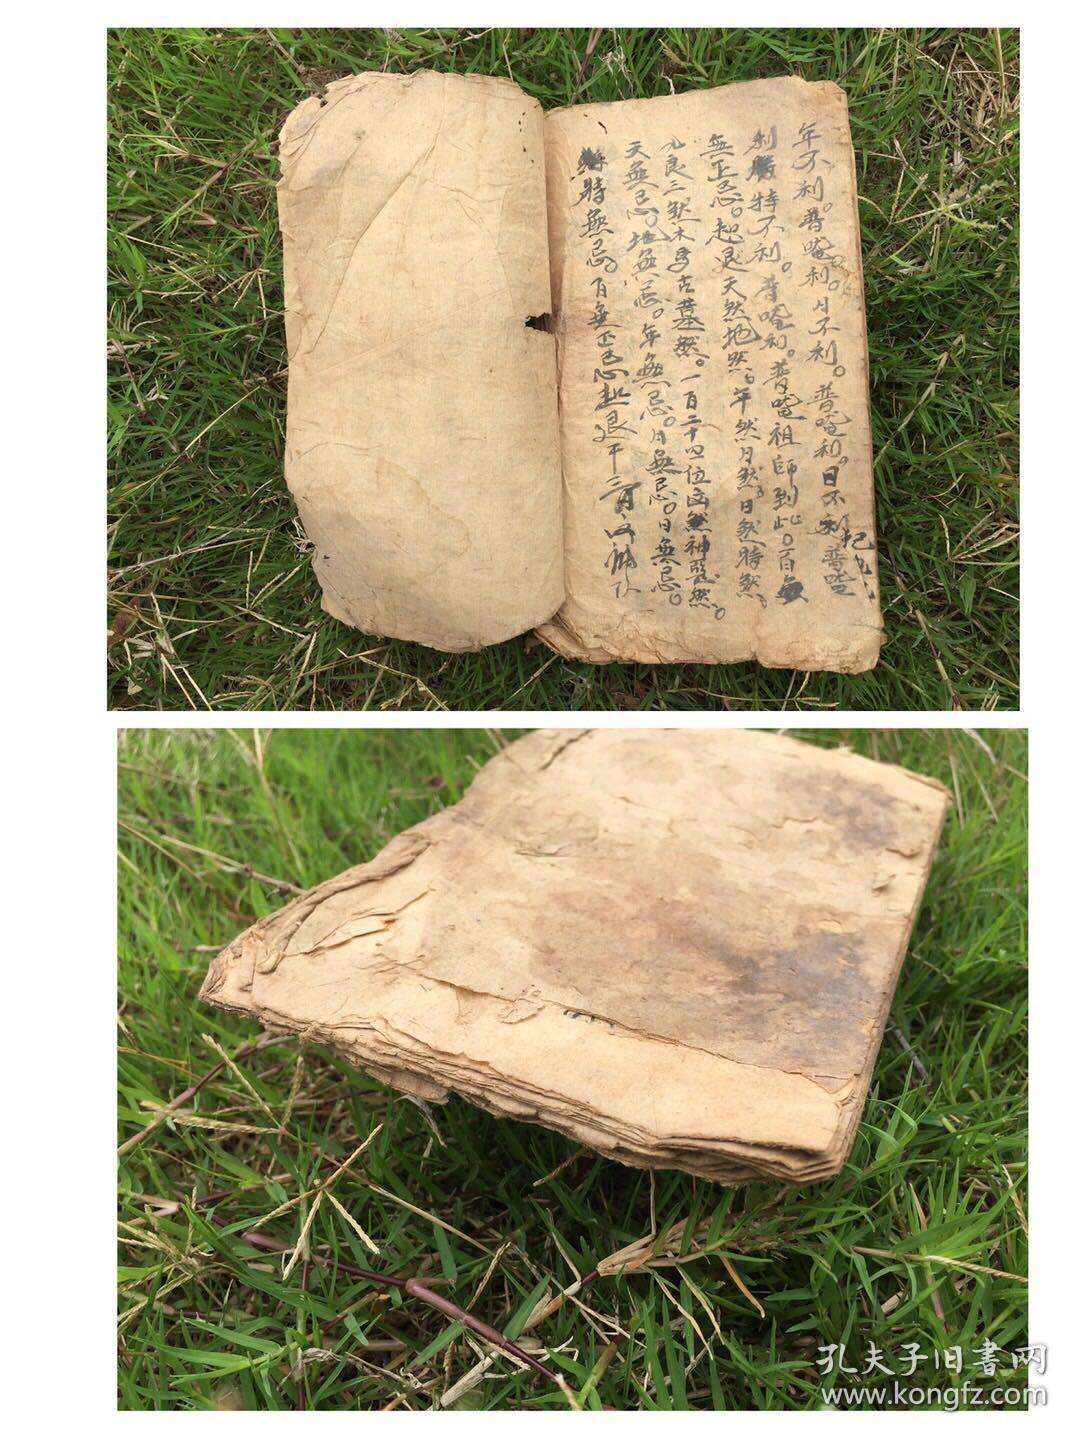 年不利。普唵利。月不利。普唵利。日不利普唵
利 時不利。普唵利。普唵祖師到此。百無
無正忌。起退天煞地煞。年煞月煞。日煞時煞。
三煞木馬古墓煞。一百二十四位凶煞神 煞。
天無忌。地無忌。年無忌。月無忌。日無忌。
時無忌。百無正忌起退千
孔夫子旧書网
www.kongfz.com